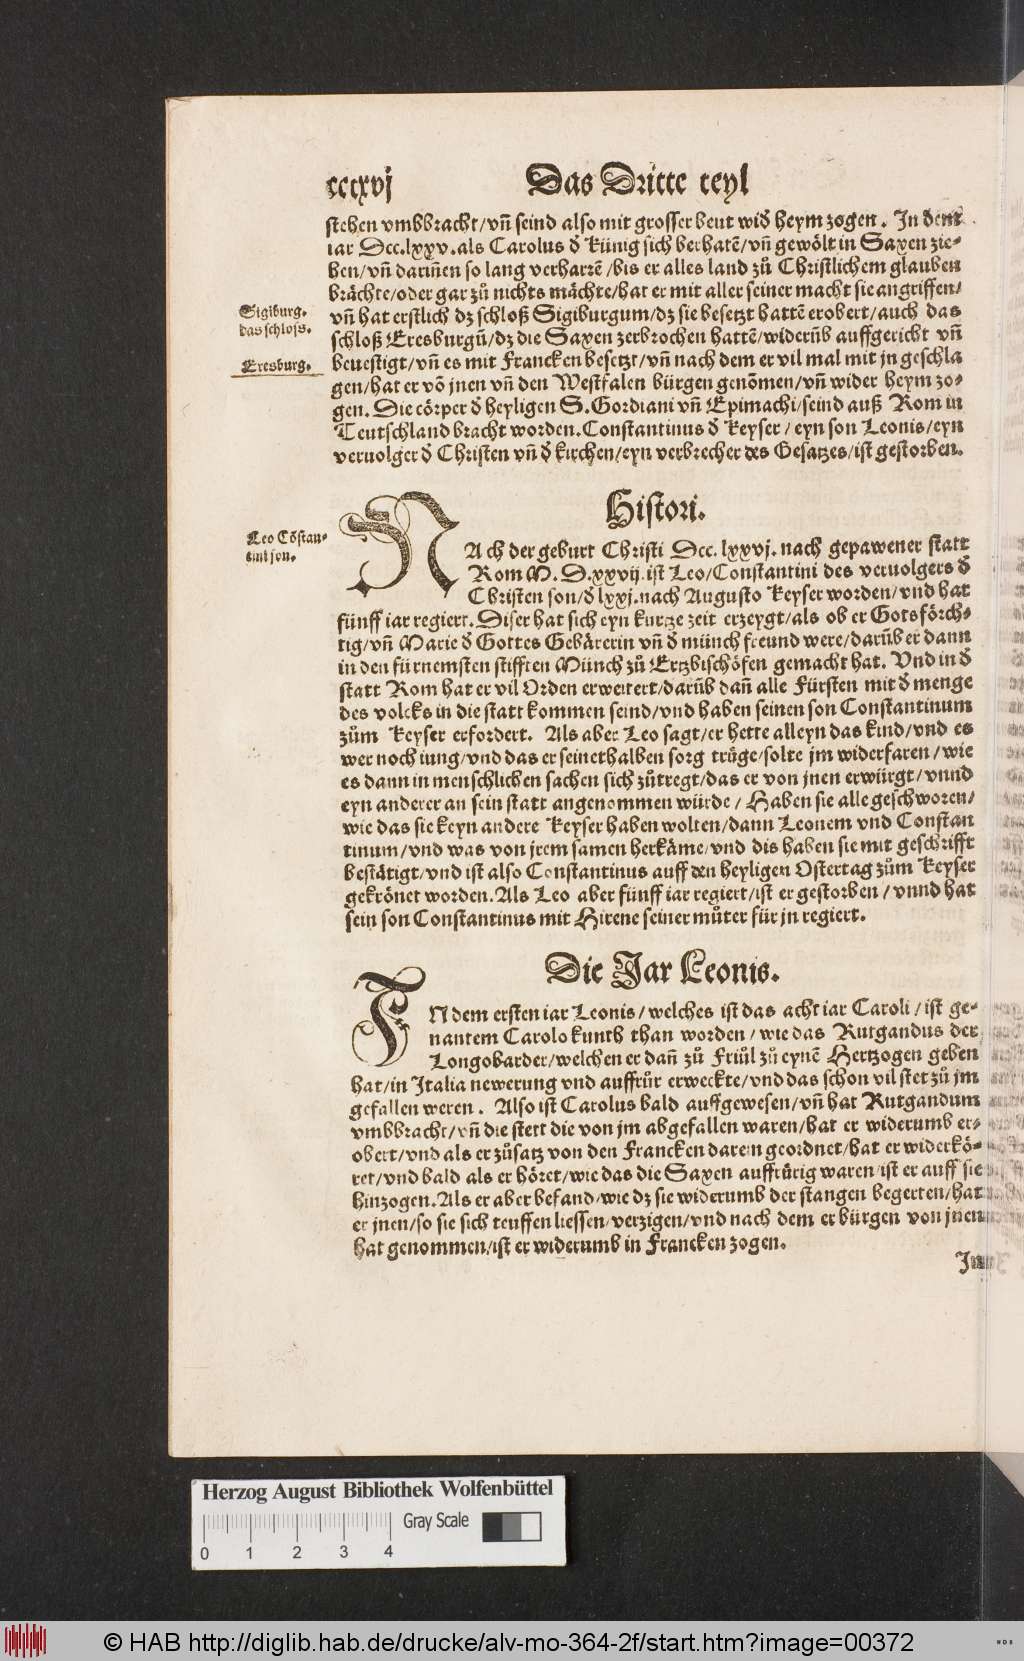 cccxvj Das Dritte teyl
stehen vmbbracht/vñ seind also mit grosser beut wid̄ heym zogen. In dem
iar Dcc.lxxv.als Carolus d̄ Künig sich berhatē/vñ gewölt in Saxen zie-
hen/vñ dariñen so lang verharrē/bis er alles land zů Christlichem glauben
brächte/oder gar zů nichts mächte/hat er mit aller seiner macht sie angriffen/
Sigiburg.
das schloss.
vñ hat erstlich dz schloß Sigiburgum/dz sie besetzt hattē erobert/auch das
schloß Eresburgū/dz die Saxen zerbrochen hattē/widerūb auffgericht vñ
Eresburg.
beuestigt/vñ es mit Francken besetzt/vñ nach dem er vil mal mit jn geschla
gen/hat er vō jnen vñ den Westfalen bürgen genōmen/vñ wider heym zo-
gen. Die cörper d̄ heyligen S.Gordiani vñ Epimachi/seind auß Rom in
Teutschland bracht worden.Constantinus d̄ Keyser/eyn son Leonis/eyn
veruolger d̄ Christen vñ d̄ kirchen/eyn verbrecher des Gesatzes/ist gestorben.
Histori.
Leo Cōstan-
tini son.
NAch der geburt Christi Dcc.lxxvj.nach gepawener statt
Rom M.D.xxvij.ist Leo/Constantini des veruolgers d̄
Christen son/d̄ lxxj.nach Augusto Keyser worden/vnd hat
fünff iar regiert. Diser hat sich eyn kurtze zeit erzeygt/als ob er Gotsförch-
tig/vñ Marie d̄ Gottes Gebärerin vñ d̄ münch freund were/darūb er dann
in den fürnemsten stifften Münch zů Ertzbischöfen gemacht hat. Vnd in d̄
statt Rom hat er vil Orden erweitert/darūb dañ alle Fürsten mit d̄ menge
des volcks in die statt kommen seind/vnd haben seinen son Constantinum
zům Keyser erfordert. Als aber Leo sagt/er hette alleyn das kind/vnd es
wer noch iung/vnd das er seinethalben sorg trüge/solte jm widerfaren/wie
es dann in menschlichen sachen sich zůtregt/das er von jnen erwürgt/vnnd
eyn anderer an sein statt angenommen würde/Haben sie alle geschworen/
wie das sie keyn andere Keyser haben wolten/dann Leonem vnd Constan
tinum/vnd was von jrem samen herkäme/vnd dis haben sie mit geschrifft
bestätigt/vnd ist also Constantinus auff den heyligen Ostertag zům Keyser
gekrönet worden.Als Leo aber fünff iar regiert/ist er gestorben/vnnd hat
sein son Constantinus mit Hirene seiner můter für jn regiert.
Die Jar Leonis.
IN dem ersten iar Leonis/welches ist das acht iar Caroli/ist ge-
nantem Carolo kunth than worden/wie das Rutgandus der
Longobarder/welchen er dañ zů Friůl zů eynē Hertzogen geben
hat/in Italia newerung vnd auffrůr erweckte/vnd das schon vil stet zů jm
gefallen weren. Also ist Carolus bald auffgewesen/vñ hat Rutgandum
vmbbracht/vñ die stett die von jm abgefallen waren/hat er widerumb er-
obert/vnd als er zůsatz von den Francken darein geordnet/hat er widerkö-
ret/vnd bald als er höret/wie das die Saxen auffrürig waren/ist er auff sie
hinzogen.Als er aber befand/wie dz sie widerumb der stangen begerten/hat
er jnen/so sie sich teuffen liessen/verzigen/vnd nach dem er bürgen von jnen
hat genommen/ist er widerumb in Francken zogen.
Herzog August Bibliothek Wolfenbüttel
Gray Scale
0 1 2 3 4
© HAB http://diglib.hab.de/drucke/alv-mo-364-2f/start.htm?image=00372